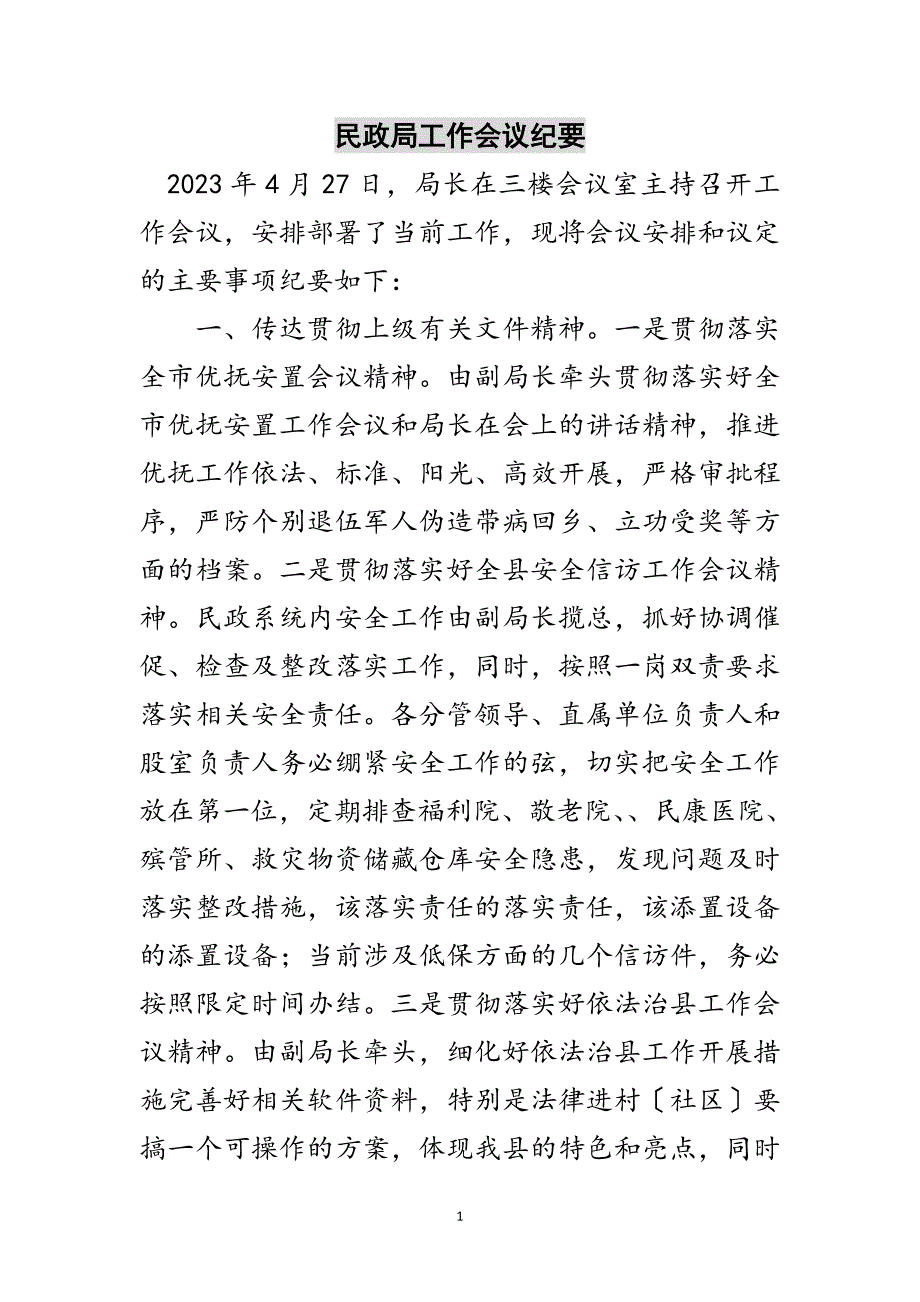 民政局工作会议纪要
2023 年 4 月 27 日，局长在三楼会议室主持召开工
作会议，安排部署了当前工作，现将会议安排和议定
的主要事项纪要如下：
一、传达贯彻上级有关文件精神。一是贯彻落实
全市优抚安置会议精神。由副局长牵头贯彻落实好全
市优抚安置工作会议和局长在会上的讲话精神，推进
优抚工作依法、标准、阳光、高效开展，严格审批程
序，严防个别退伍军人伪造带病回乡、立功受奖等方
面的档案。二是贯彻落实好全县安全信访工作会议精
神。民政系统内安全工作由副局长揽总，抓好协调催
促、检查及整改落实工作，同时，按照一岗双责要求
落实相关安全责任。各分管领导、直属单位负责人和
股室负责人务必绷紧安全工作的弦，切实把安全工作
放在第一位，定期排查福利院、敬老院、、民康医院、
殡管所、救灾物资储藏仓库安全隐患，发现问题及时
落实整改措施，该落实责任的落实责任，该添置设备
的添置设备；当前涉及低保方面的几个信访件，务必
按照限定时间办结。三是贯彻落实好依法治县工作会
议精神。由副局长牵头，细化好依法治县工作开展措
施完善好相关软件资料，特别是法律进村〔社区〕要
搞一个可操作的方案，体现我县的特色和亮点，同时
1